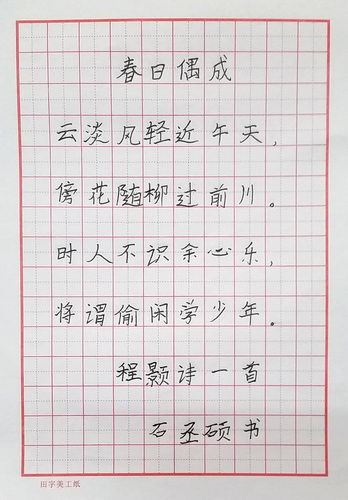 春日偶成
云淡风轻近午天,
傍花随柳过前川。
时人不识余心乐,
将谓偷闲学少年。
程颢诗一首
石丞硕书
田字美工纸